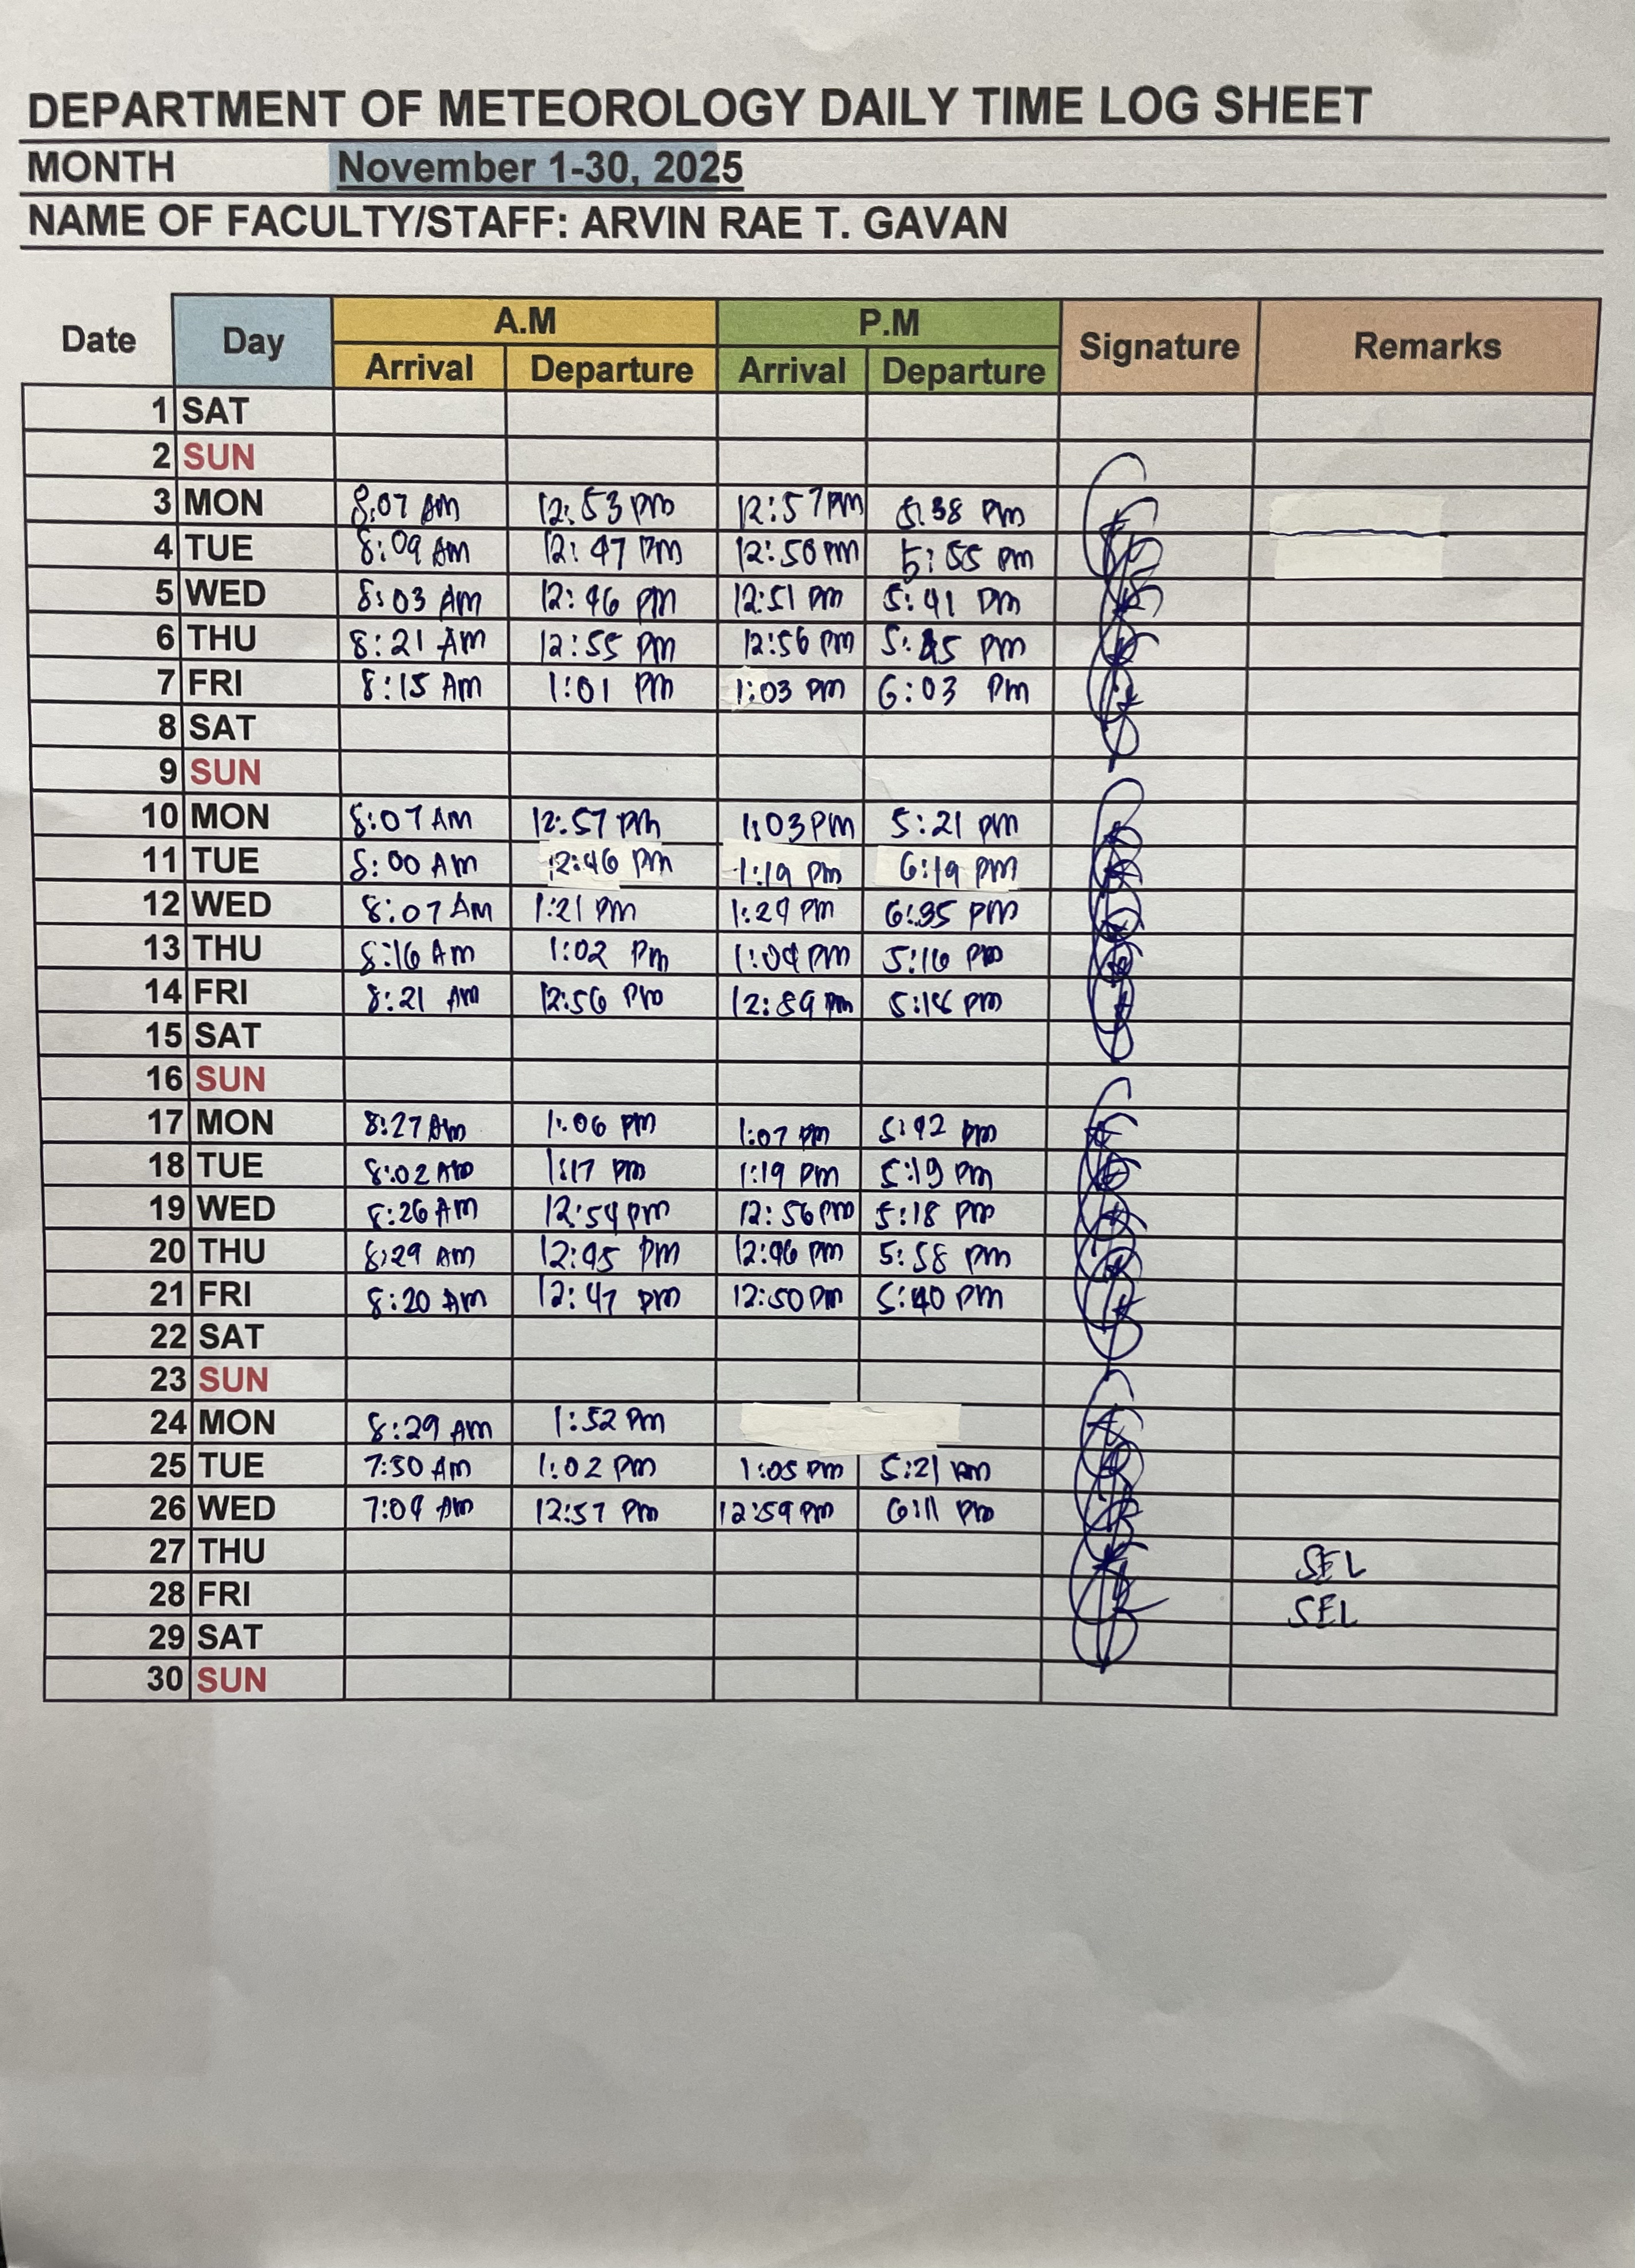 DEPARTMENT OF METEOROLOGY DAILY TIME LOG SHEET
MONTH November 1-30, 2025
NAME OF FACULTY/STAFF: ARVIN RAE T. GAVAN
Date Day A.M P.M Signature Remarks
Arrival Departure Arrival Departure
1 SAT
2 SUN
3 MON 8:07 AM 12:53 PM 12:57 PM 5:38 PM
4 TUE 8:09 AM 12:47 PM 12:50 PM 5:55 PM
5 WED 8:03 AM 12:46 PM 12:51 PM 5:41 PM
6 THU 8:21 AM 12:55 PM 12:56 PM PM
7 FRI 8:15 AM 1:01 PM 1:03 PM 6:03 PM
8 SAT
9 SUN
10 MON 8:07 AM 12:57 PM 1:03 PM 5:21 PM
11 TUE 8:00 AM 12:46 PM 1:19 PM 6:19 PM
12 WED 8:07 AM 1:21 PM 1:29 PM 6:35 PM
13 THU 8:16 AM 1:02 PM 1:04 PM 5:16 PM
14 FRI 8:21 AM 12:56 PM PM PM
15 SAT
16 SUN
17 MON 8:27 AM 1:06 PM 1:07 PM 5:42 PM
18 TUE 8:02 AM 1:17 PM 1:19 PM 5:19 PM
19 WED 8:26 AM 12:54 PM 12:56 PM 5:18 PM
20 THU 8:29 AM 12:45 PM 12:46 PM 5:58 PM
21 FRI 8:20 AM 12:47 PM 12:50 PM 5:40 PM
22 SAT
23 SUN
24 MON 8:29 AM 1:52 PM
25 TUE 7:50 AM 1:02 PM 1:05 PM 5:21 PM
26 WED 7:09 AM 12:57 PM 12:59 PM 6:11 PM
27 THU SEL
28 FRI SEL
29 SAT
30 SUN